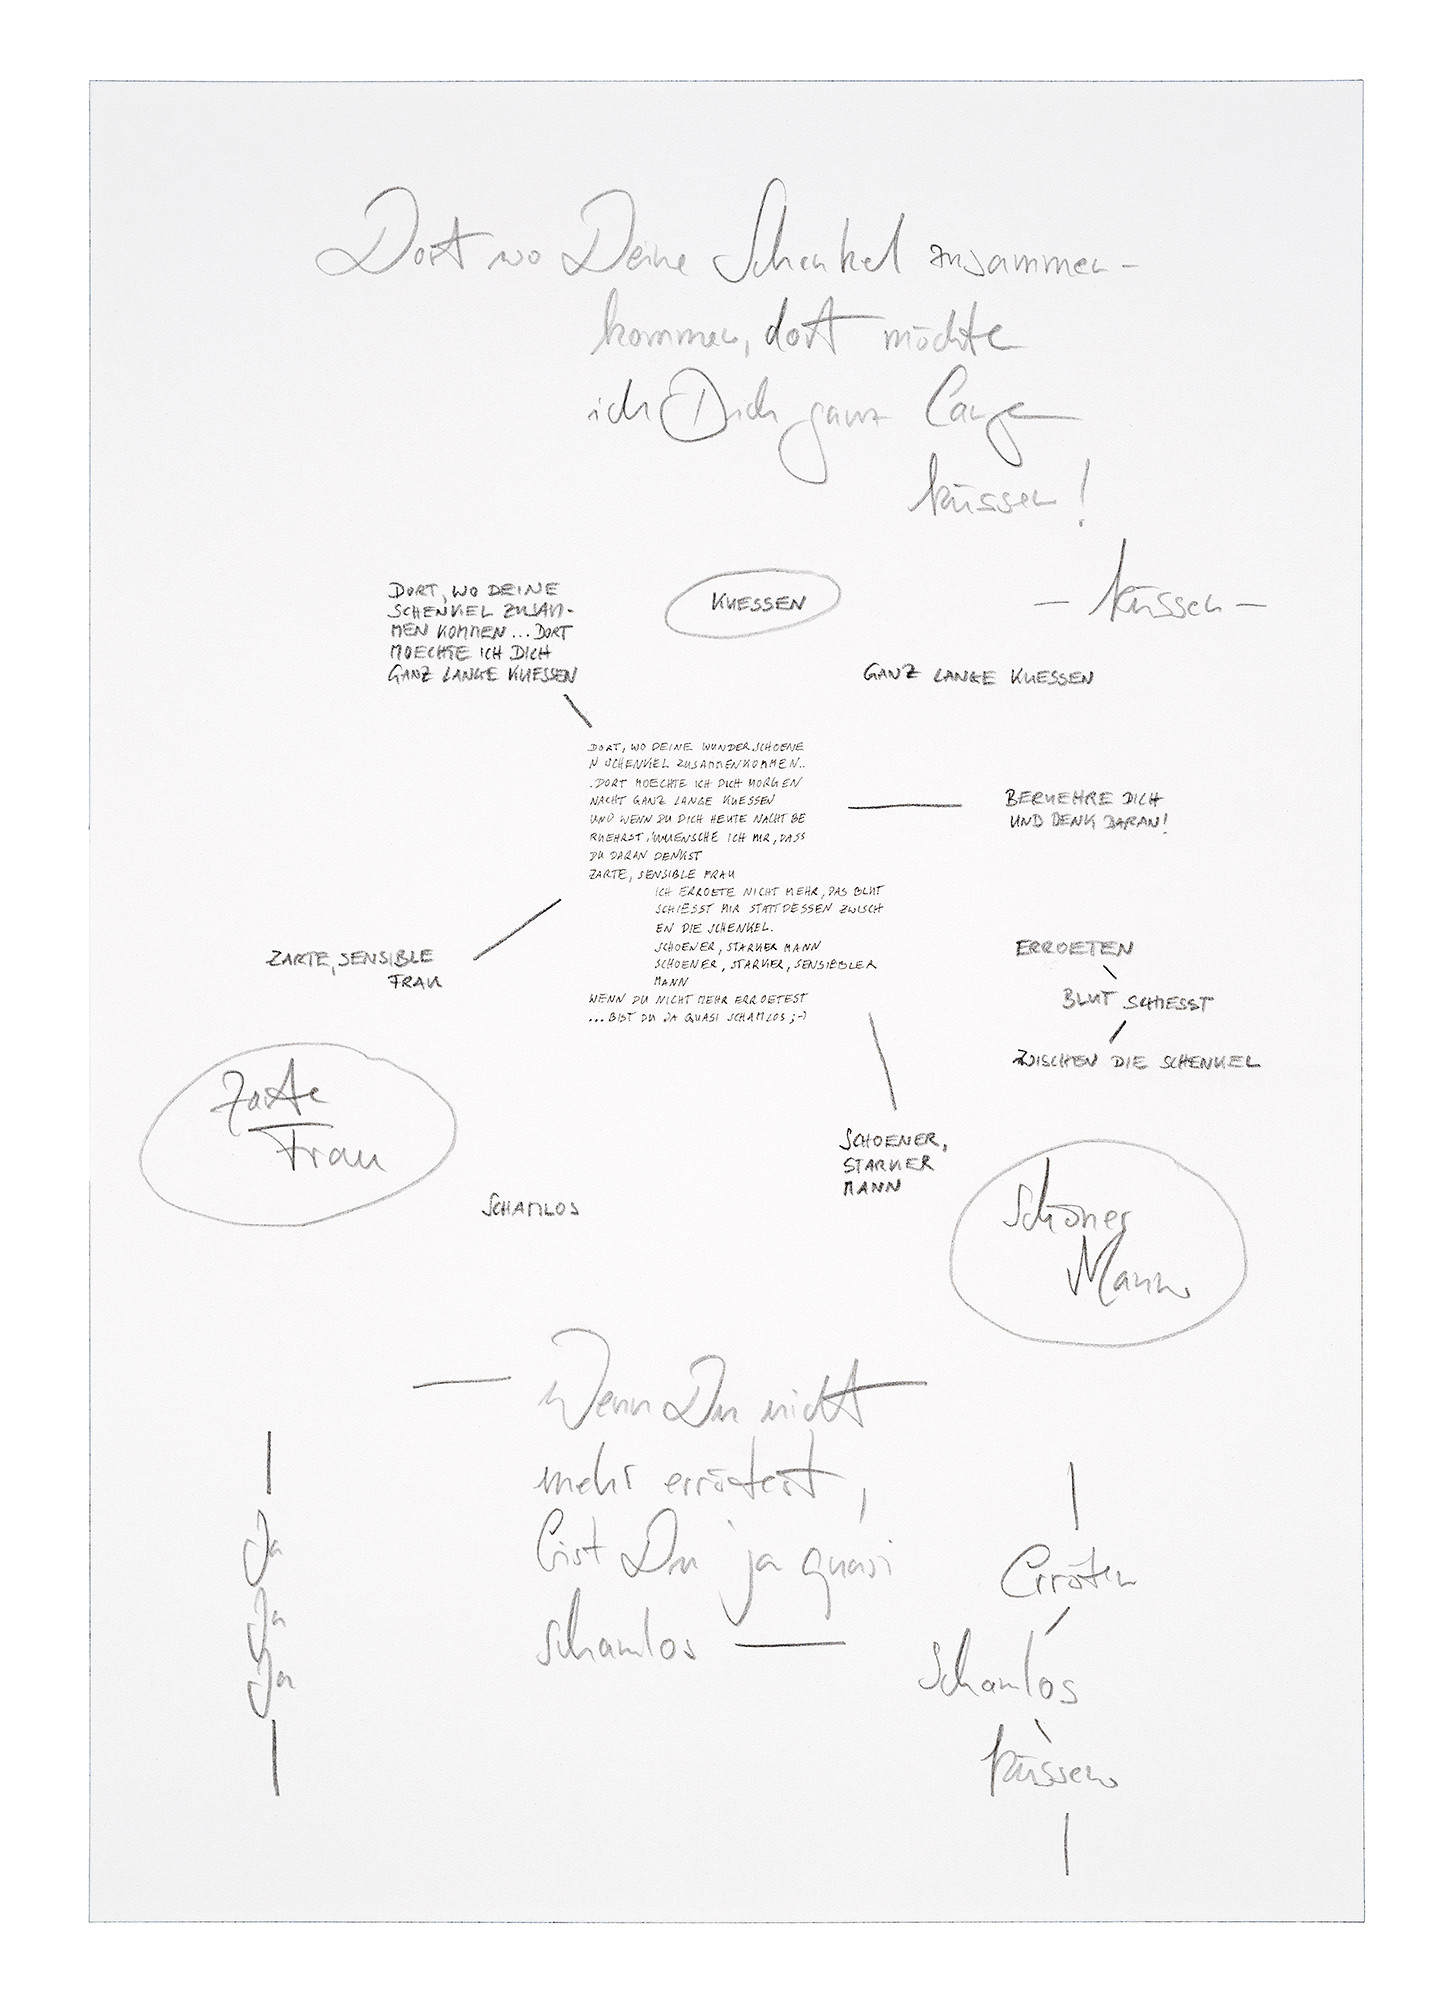 Dort wo Deine Schenkel zusammen-
kommen, dort möchte
ich Dich ganz lange
küssen!
- küssen -
KUESSEN
DORT, WO DEINE
SCHENKEL ZUSAM-
MEN KOMMEN ... DORT
MOECHTE ICH DICH
GANZ LANGE KUESSEN
GANZ LANGE KUESSEN
DORT, WO DEINE WUNDERSCHOENE
N SCHENKEL ZUSAMMENKOMMEN..
.DORT MOECHTE ICH DICH MORGEN
NACHT GANZ LANGE KUESSEN
UND WENN DU DICH HEUTE NACHT BE
RUEHRST, WUENSCHE ICH MIR, DASS
DU DARAN DENKST
ZARTE, SENSIBLE FRAU
ICH ERROETE NICHT MEHR, DAS BLUT
SCHIESST MIR STATTDESSEN ZWISCH
EN DIE SCHENKEL.
SCHOENER, STARKER MANN
SCHOENER, STARKER, SENSIEBLER
MANN
WENN DU NICHT MEHR ERROETEST
... BIST DU JA QUASI SCHAMLOS ;-)
BERUEHRE DICH
UND DENK DARAN!
ZARTE, SENSIBLE
FRAU
ERROETEN
BLUT SCHIESST
ZWISCHEN DIE SCHENKEL
Zarte
Frau
SCHOENER,
STARKER
MANN
SCHAMLOS
Schöner
Mann
Wenn Du nicht
mehr errötest,
bist Du ja quasi
schamlos
Ja
Ja
Ja
Erröten
Schamlos
küssen